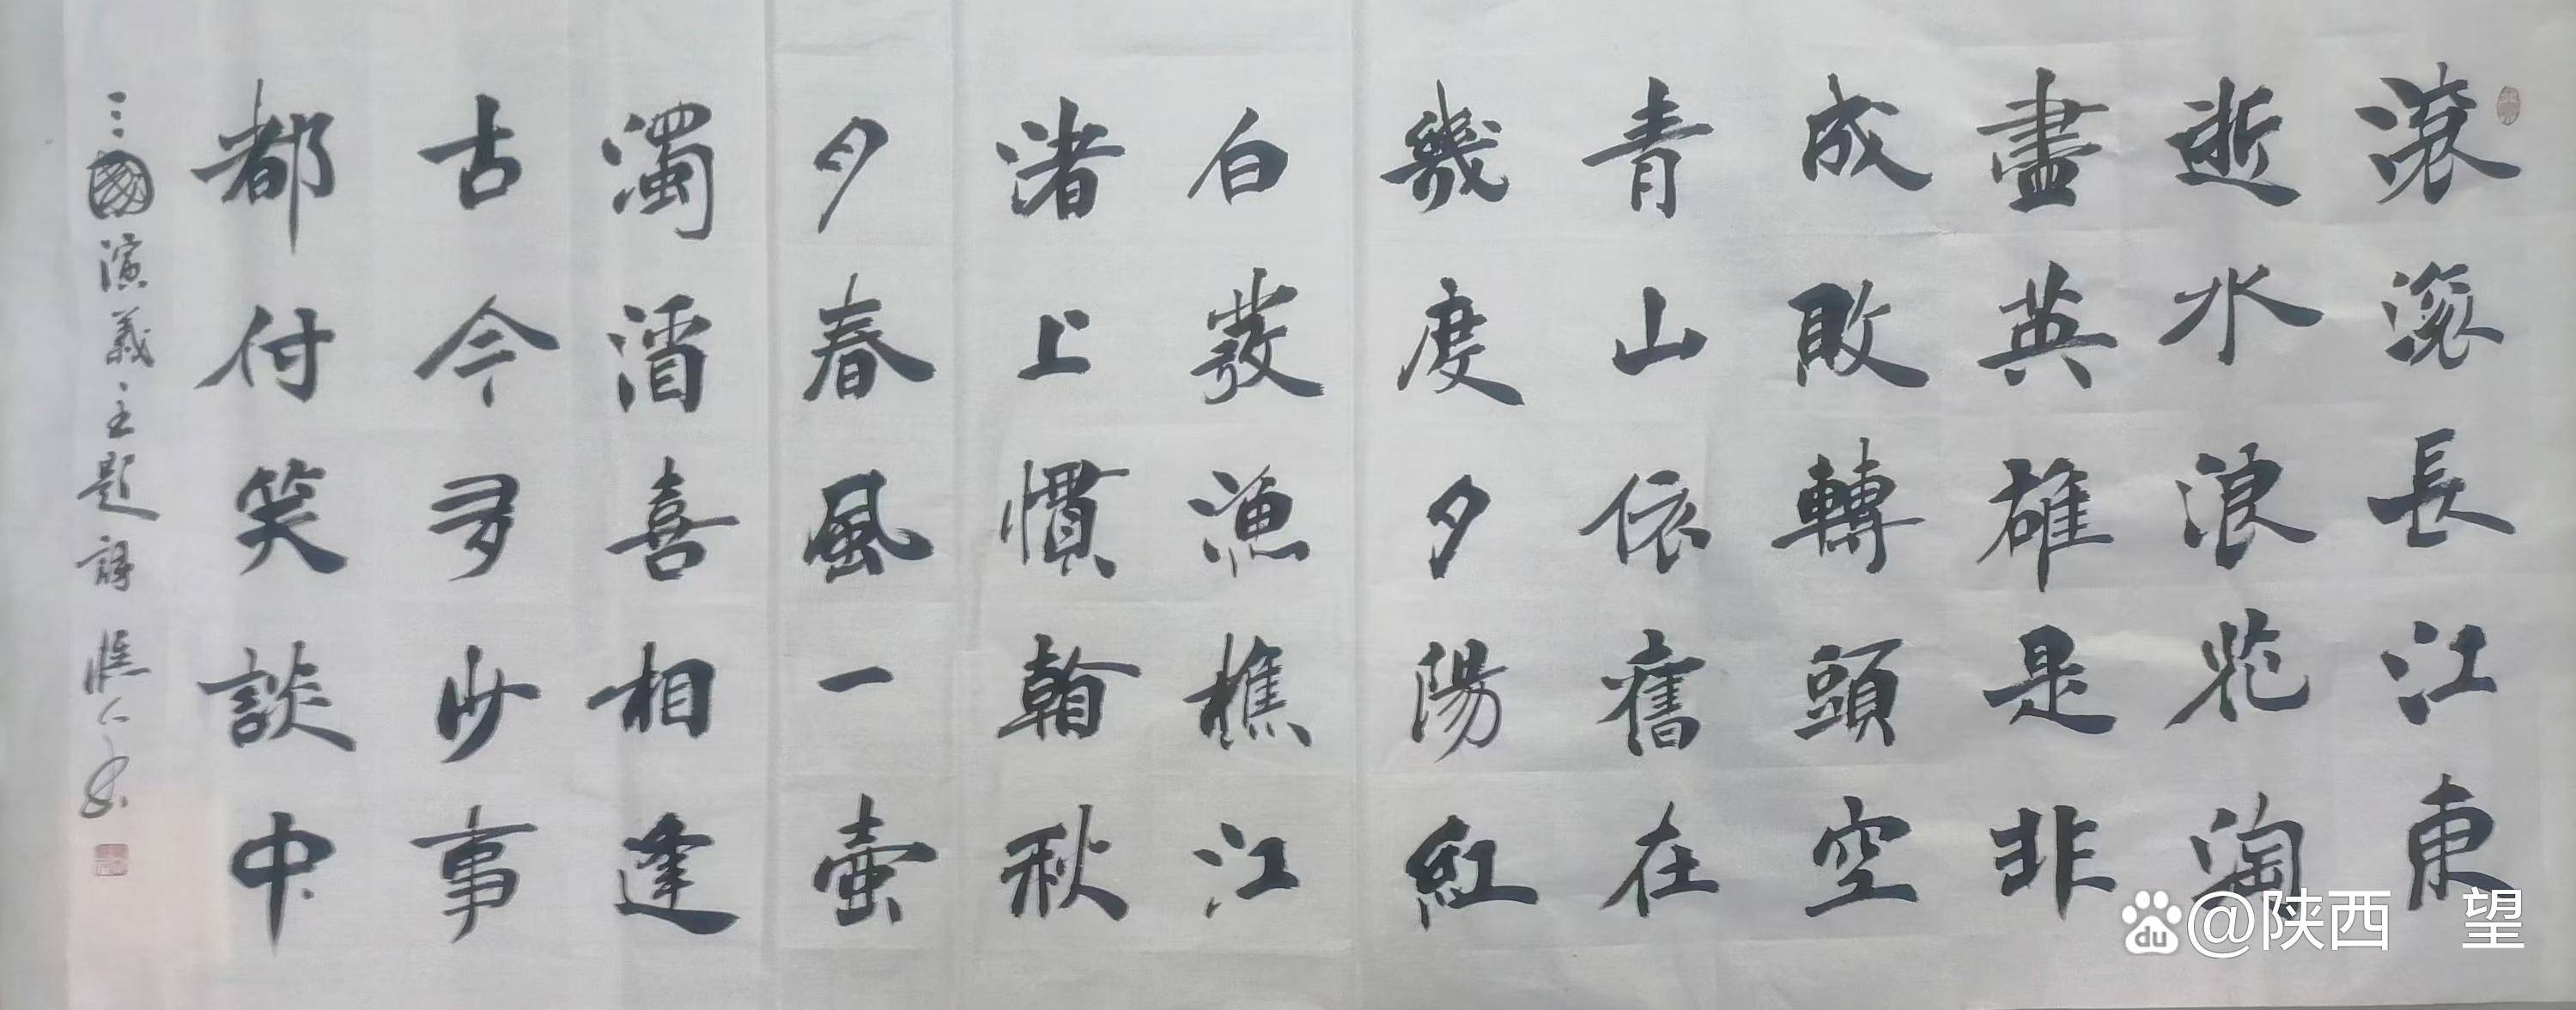 滾滾長江東
逝水浪花淘
盡英雄是非
成敗轉頭空
青山依舊在
幾度夕陽紅
白發漁樵江
渚上慣翰秋
月春風一壺
濁酒喜相逢
古今多少事
都付笑談中
三國演義主題詞
@陕西 望